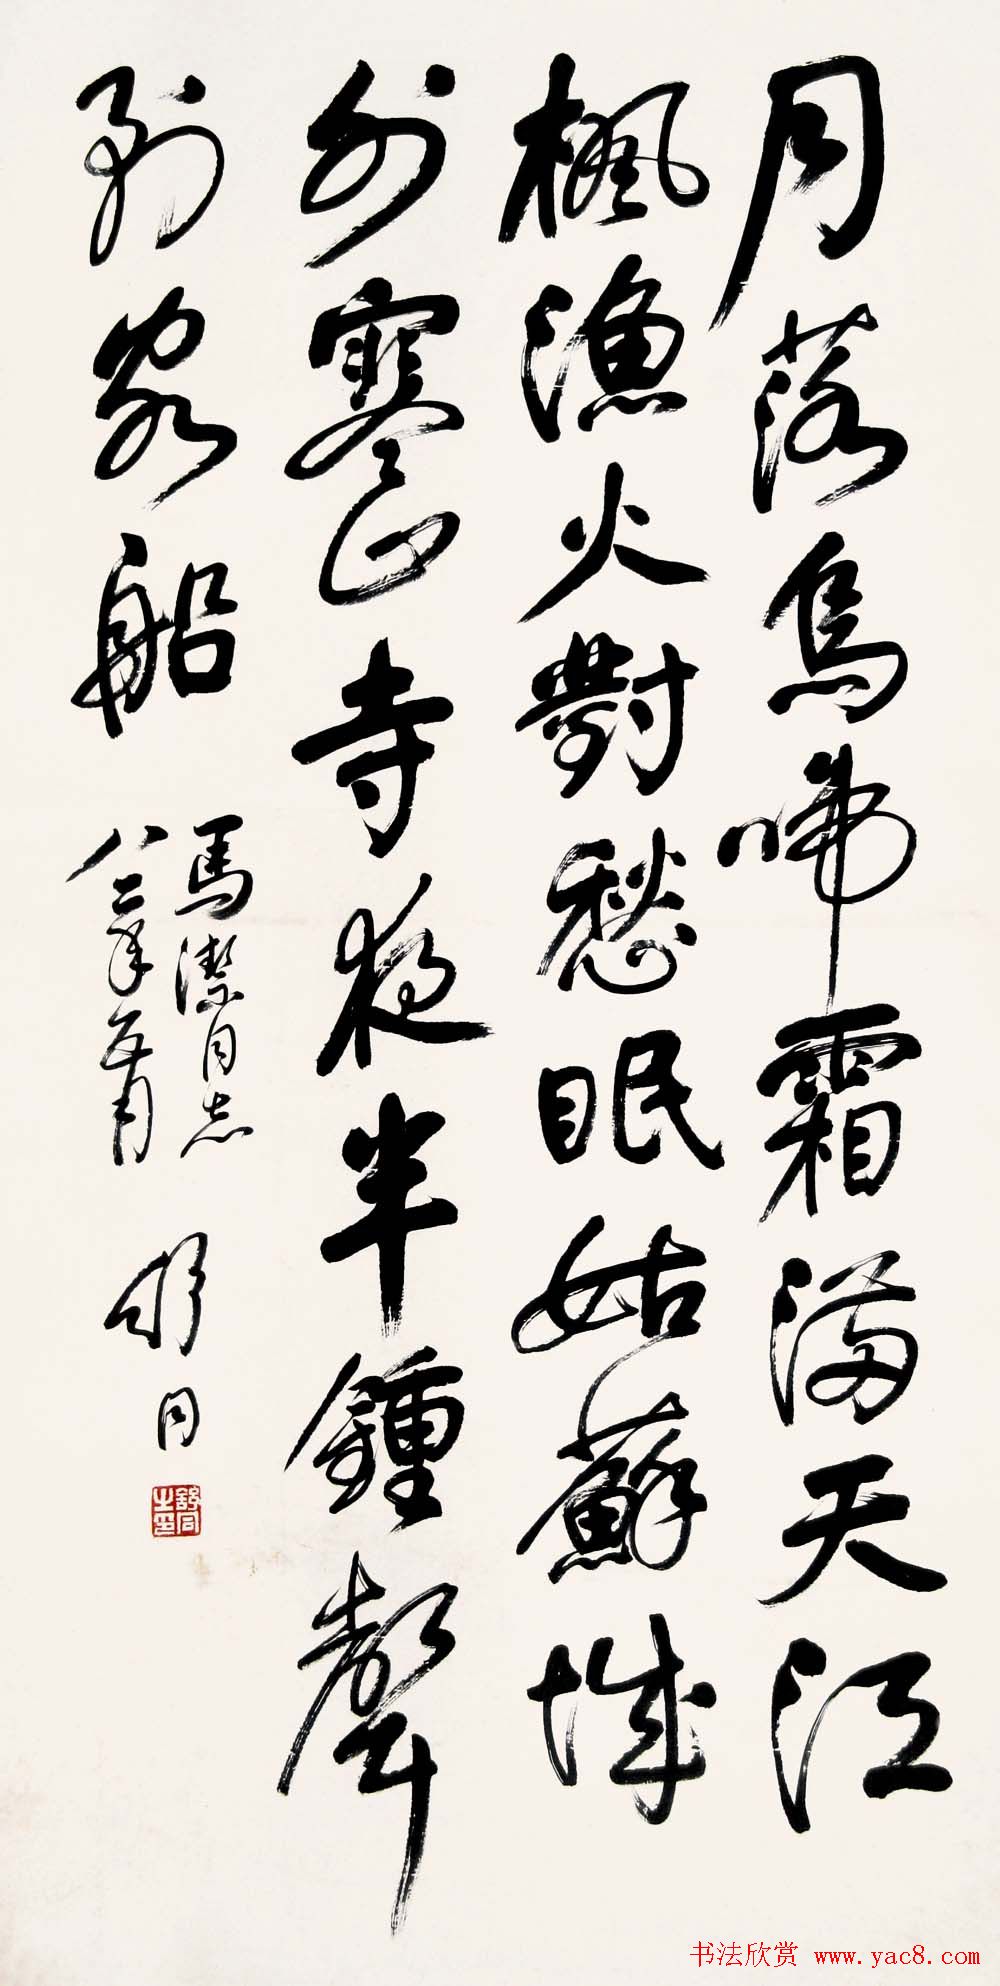 月落烏啼霜滿天江
楓漁火對愁眠姑蘇城
外寒山寺夜半鍾聲
到客船
馬潔同志
八二年五月
舒同
舒同之印
书法欣赏 www.yac8.com